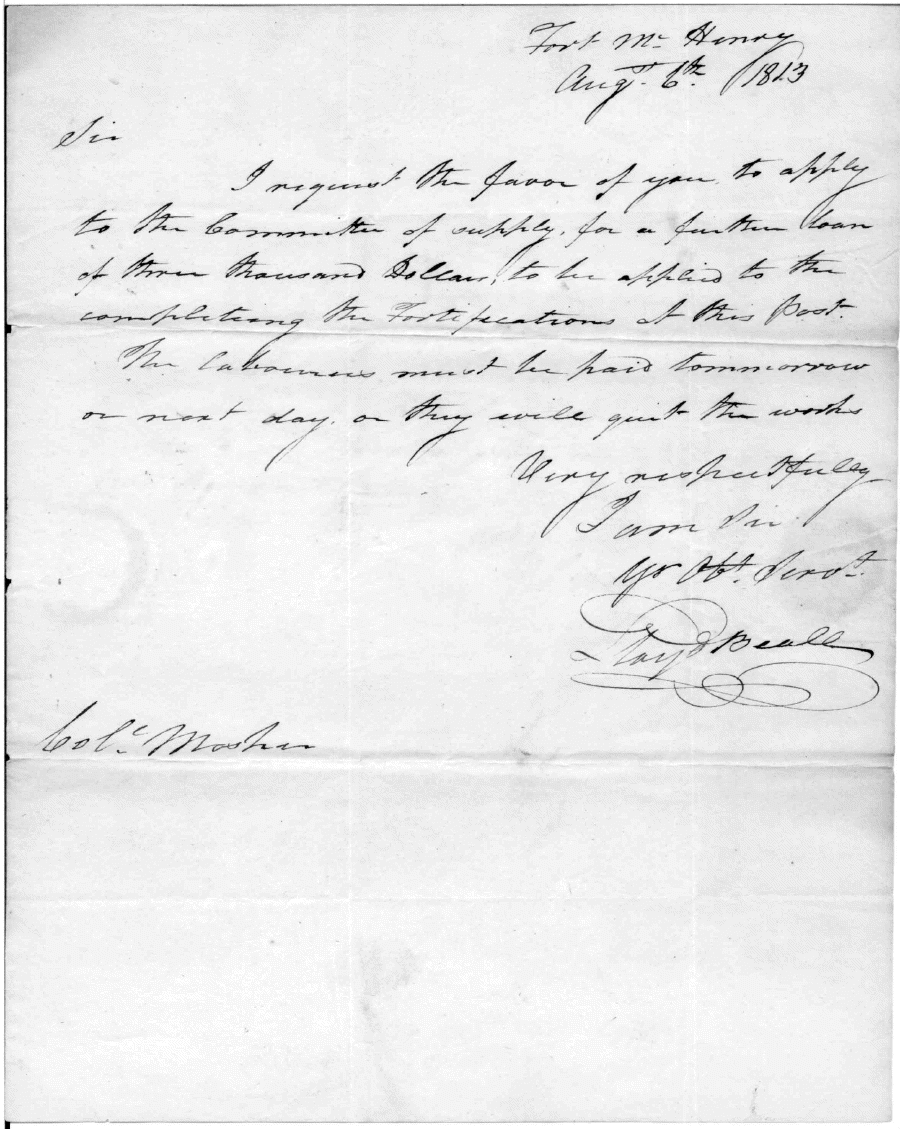 Fort Mc Henry
Augst. 6th. 1813
Sir
I request the favor of you, to apply
to the Committee of supply, for a further loan
of three thousand Dollars, to be applied to the
completing the Fortifications at this Post.
The Labourers must be paid tommorrow
or next day, or they will quit the works
Very respectfully
I am Sir
Yr Obt. Servt.
Lloyd Beall
Colo. Mosher